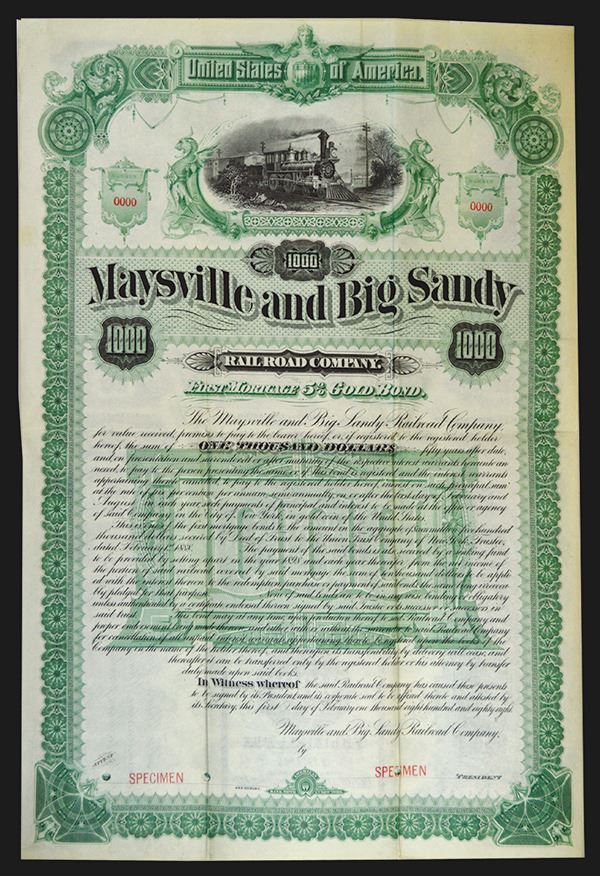 United States of America.
0000
0000
1000
Maysville and Big Sandy
1000
1000
RAILROAD COMPANY.
FIRST MORTGAGE 5% GOLD BOND.
The Maysville and Big Sandy Railroad Company,
for value received, promises to pay to the bearer hereof, or, if registered, to the registered holder
hereof, the sum of ONE THOUSAND DOLLARS fifty years after date,
and on presentation and surrender, at or after maturity of the respective interest warrants hereunto an-
nexed, to pay to the person presenting the same, or if this bond is registered and the interest warrants
appertaining thereto
at the rate of five per centum per annum, semi-annually, on or after the first day of February and
August in each year, such payments of principal and interest to be made at the office or agency
of said Company in the City of New York, in gold coin of the United States.
This is one of the first mortgage bonds to be issued
thousand dollars, secured by Deed of Trust to the Union Trust Company of New York, Trustee,
dated February 1st 1888. The payment of the said bonds is also secured by a sinking fund
to be provided by setting apart in the year 1898 and each year thereafter, from the net income of
the portion of said railroad covered by said mortgage the sum of ten thousand dollars to be applie
d with the interest thereon to the redemption, purchase or payment of said bonds, the same being irrevoca-
bly pledged for that purpose. None of said bonds are to be in anywise binding or obligatory
unless authenticated by a certificate endorsed thereon signed by said Trustee or its successor or successors in
said trust. This bond may at any time, upon production thereof to said Railroad Company and
for cancellation of all unpaid interest warrants appertaining thereto, be registered upon the books of the
Company in the name of the holder thereof, and thereupon its transferability by delivery will cease, and
thereafter it can be transferred only by the registered holder or his attorney by transfer
duly made upon said books.
In Witness whereof the said Railroad Company has caused these presents
to be signed by its President and its corporate seal to be affixed thereto and attested by
its Secretary, this first day of February one thousand eight hundred and eighty eight.
Maysville and Big Sandy Railroad Company,
by
ATTEST
SPECIMEN
SPECIMEN
PRESIDENT
SECRETARY.